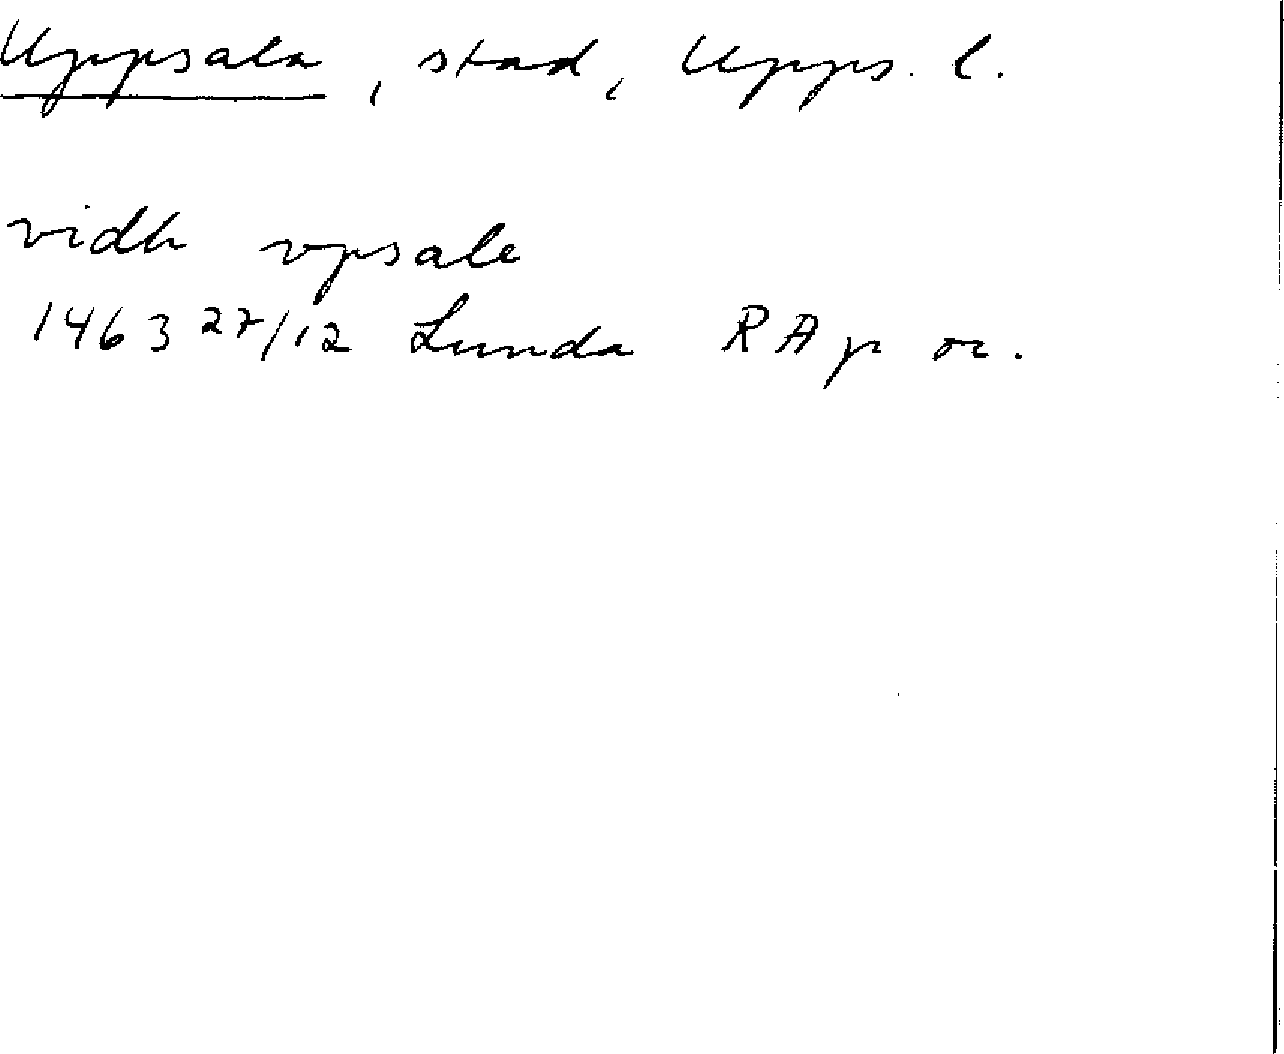 Uppsala, stad, Upps. l.
vidh vpsale
1463 27/12 Lunda RAp or.